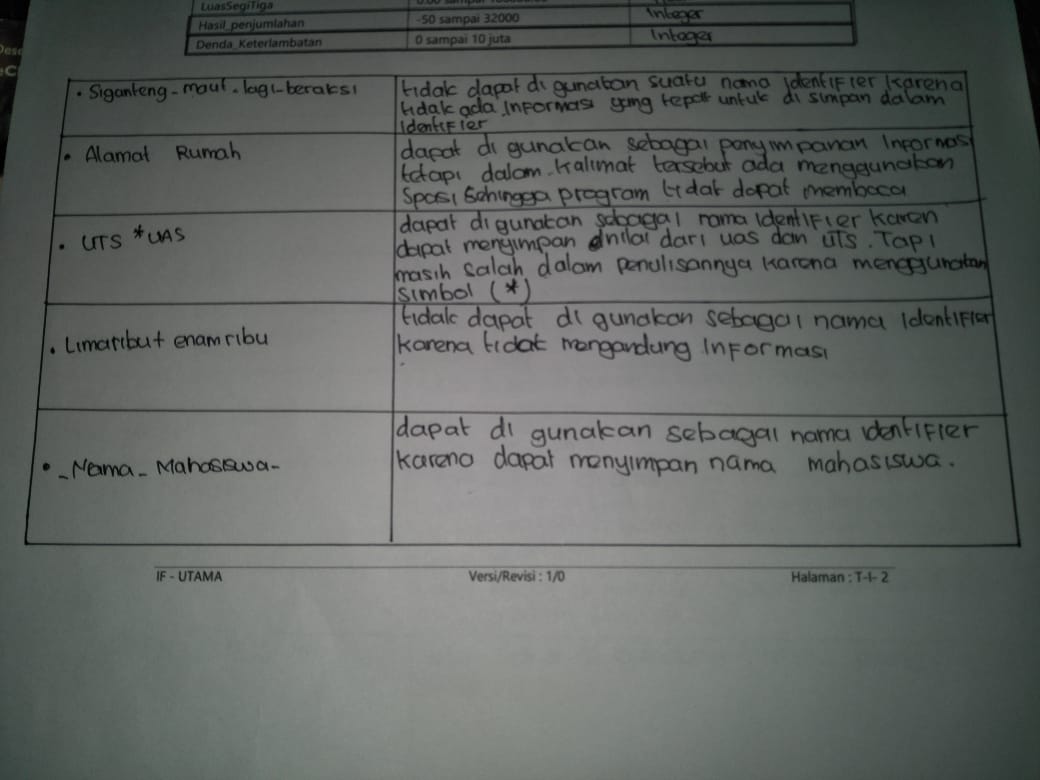 LuasSegiTiga
Hasil_penjumlahan -50 sampai 32000 Integer
Denda_Keterlambatan 0 sampai 10 juta Integer
• Siganteng-maut-lagi-beraksi tidak dapat di gunakan suatu nama identifier karena
tidak ada informasi yang tepat untuk di simpan dalam
identifier
• Alamat Rumah dapat di gunakan sebagai penyimpanan Informasi
tetapi dalam kalimat tersebut ada menggunakan
Spasi Sehingga program tidak dapat membaca
• UTS *UAS dapat di gunakan sebagai nama identifier karen
dapat menyimpan nilai dari uas dan UTS. Tapi
masih salah dalam penulisannya karena menggunakan
simbol (*)
• Limaribut enamribu tidak dapat di gunakan sebagai nama identifier
karena tidak mengandung informasi
• _Nama_Mahasiswa- dapat di gunakan sebagai nama identifier
karena dapat menyimpan nama mahasiswa.
IF - UTAMA Versi/Revisi : 1/0 Halaman : T-I- 2